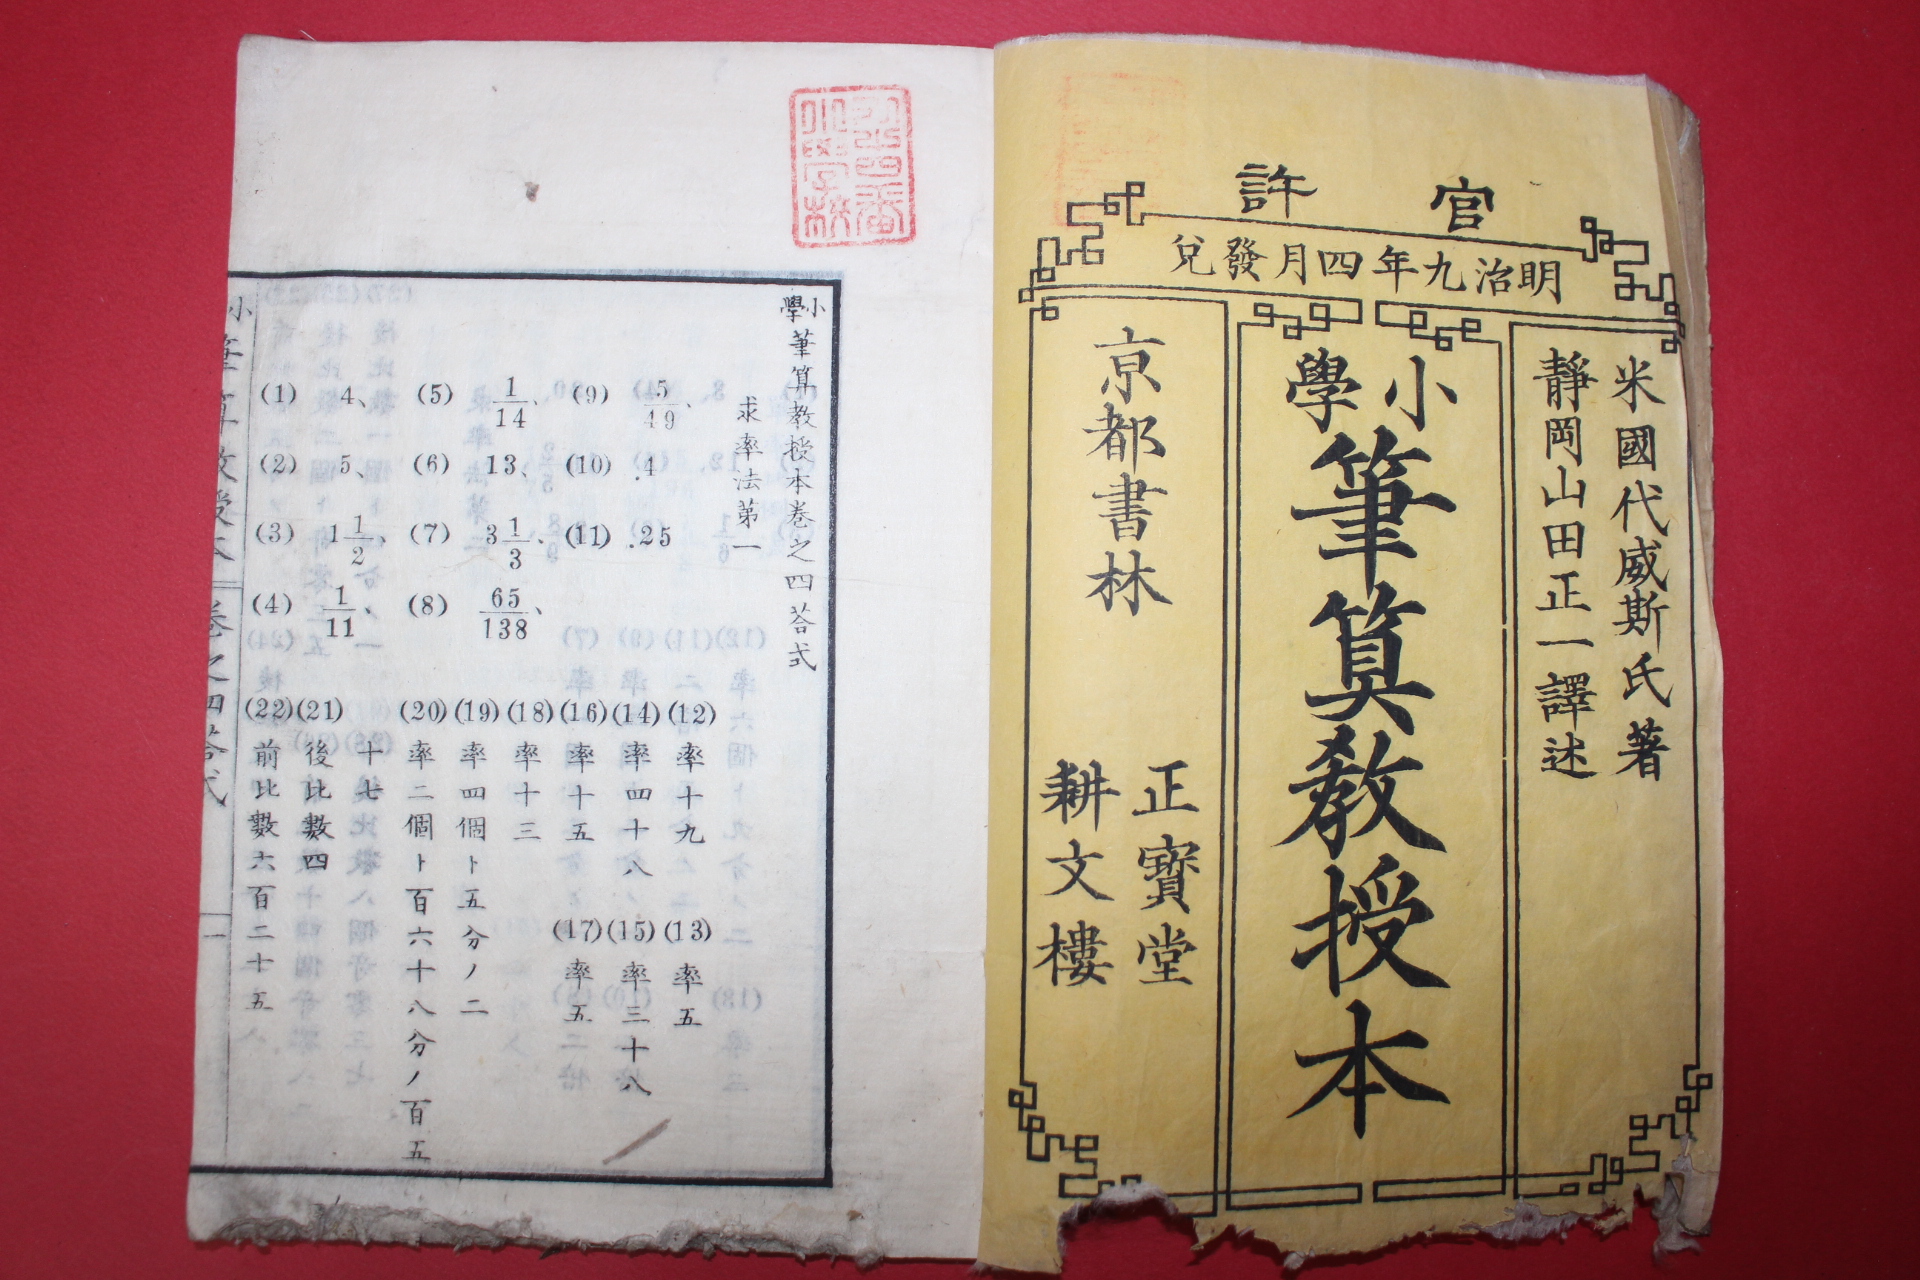 官許
明治九年四月發兌
米國代威斯氏著
靜岡山田正一譯述
小學筆算教授本
京都書林
正寶堂
耕文樓
四番
小學校
小學筆算教授本巻之四荅式
求率法第一
(1) 4、 (5) 1/14、 (9) 5/49、
(2) 5、 (6) 13、 (10) .4
(3) 1 1/2、 (7) 3 1/3、 (11) .25
(4) 1/11、 (8) 65/138、
(12) 率十九 (13) 率五
(14) 率四十八 (15) 率三十八
(16) 率十五 (17) 率五
(18) 率十三
(19) 率四個ト五分ノ二
(20) 率二個ト百六十八分ノ百五
十七
(21) 後比數四
(22) 前比數六百二十五
小筆算教授本 巻之四荅式 一